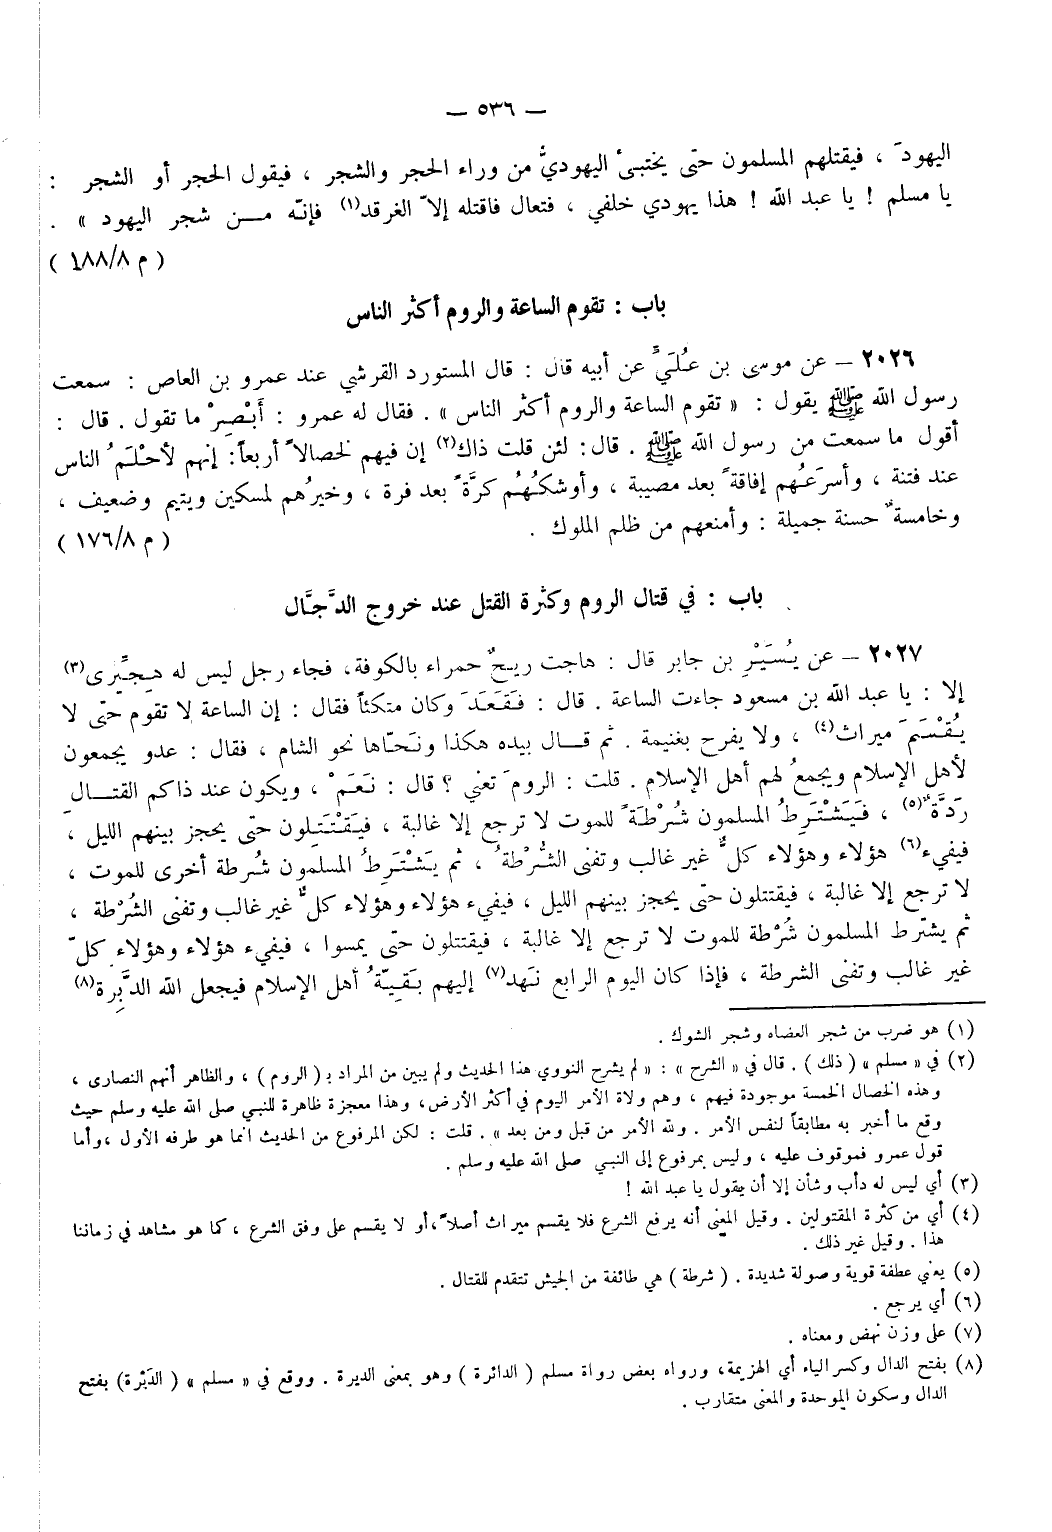 — ٥٣٦ —
اليهودَ ، فيقتلهم المسلمون حتى يختبىٔ اليهوديُّ من وراء الحجر والشجر ، فيقول الحجر أو الشجر :
يا مسلم ! يا عبد الله ! هذا يهودي خلفي ، فتعال فاقتله إلاّ الغرقد(١) فإنّه مــن شجر اليهود » .
( م ١٨٨/٨ )
باب : تقوم الساعة والروم أكثر الناس
٢٠٢٦ – عن موسى بن عُلَيٍّ عن أبيه قال : قال المستورد القرشي عند عمرو بن العاص : سمعت
رسول الله ﷺ يقول : « تقوم الساعة والروم أكثر الناس » . فقال له عمرو : أَبْصِرْ ما تقول . قال :
أقول ما سمعت من رسول الله ﷺ . قال : لئن قلت ذاك(٢) إن فيهم لخصالاً أربعاً : إنهم لأحْلَمُ الناس
عند فتنة ، وأسرَعُهم إفاقةً بعد مصيبة ، وأوشكُهُم كرَّةً بعد فرة ، وخيرُهم لمسكين ويتيم وضعيف ،
وخامسةٌ حسنة جميلة : وأمنعهم من ظلم الملوك .
( م ١٧٦/٨ )
باب : في قتال الروم وكثرة القتل عند خروج الدَّجَّال
٢٠٢٧ – عن يُسَيْرِ بن جابر قال : هاجت ريحٌ حمراء بالكوفة، فجاء رجل ليس له هِجِّيرى(٣)
إلا : يا عبد الله بن مسعود جاءت الساعة . قال : فَقَعَدَ وكان متكئاً فقال : إن الساعة لا تقوم حتى لا
يُقْسَمَ ميراث(٤) ، ولا يفرح بغنيمة . ثم قــال بيده هكذا ونَحّاها نحو الشام ، فقال : عدو يجمعون
لأهل الإسلام ويجمعُ لهم أهل الإسلام . قلت : الرومَ تعني ؟ قال : نَعَمْ ، ويكون عند ذاكم القتــالِ
رَدَّةٌ(٥) ، فَيَشْتَرِطُ المسلمون شُرْطَةً للموت لا ترجع إلا غالبة ، فيَقْتَتِلون حتى يحجز بينهم الليل ،
فيفيء(٦) هؤلاء وهؤلاء كلٌّ غير غالب وتفنى الشُّرْطةُ ، ثم يَشْتَرِطُ المسلمون شُرطة أخرى للموت ،
لا ترجع إلا غالبة ، فيقتتلون حتى يحجز بينهم الليل ، فيفيء هؤلاء وهؤلاء كلٌّ غير غالب وتفنى الشُرْطة ،
ثم يشترط المسلمون شُرْطة للموت لا ترجع إلا غالبة ، فيقتتلون حتى يمسوا ، فيفيء هؤلاء وهؤلاء كلّ
غير غالب وتفنى الشرطة ، فإذا كان اليوم الرابع نَهد(٧) إليهم بَقيّةُ أهل الإسلام فيجعل الله الدَّبِرة(٨)
(١) هو ضرب من شجر العضاه وشجر الشوك .
(٢) في « مسلم » ( ذلك ) . قال في « الشرح » : « لم يشرح النووي هذا الحديث ولم يبين من المراد بـ ( الروم ) ، والظاهر أنهم النصارى ،
وهذه الخصال الخمسة موجودة فيهم ، وهم ولاة الأمر اليوم في أكثر الأرض، وهذا معجزة ظاهرة للنبي صلى الله عليه وسلم حيث
وقع ما أخبر به مطابقاً لنفس الأمر . ولله الأمر من قبل ومن بعد » . قلت : لكن المرفوع من الحديث انما هو طرفه الأول ،وأما
قول عمرو فموقوف عليه ، وليس بمرفوع إلى النبي صلى الله عليه وسلم .
(٣) أي ليس له دأب وشأن إلا أن يقول يا عبد الله !
(٤) أي من كثرة المقتولين . وقيل المعنى أنه يرفع الشرع فلا يقسم ميراث أصلاً ،أو لا يقسم على وفق الشرع ، كما هو مشاهد في زماننا
هذا . وقيل غير ذلك .
(٥) يعني عطفة قوية وصولة شديدة . ( شرطة ) هي طائفة من الجيش تتقدم للقتال .
(٦) أي يرجع .
(٧) على وزن نهض ومعناه .
(٨) بفتح الدال وكسر الياء أي الهزيمة، ورواه بعض رواة مسلم ( الدائرة ) وهو بمعنى الديرة . ووقع في « مسلم » ( الدَبْرة) بفتح
الدال وسكون الموحدة والمعنى متقارب .